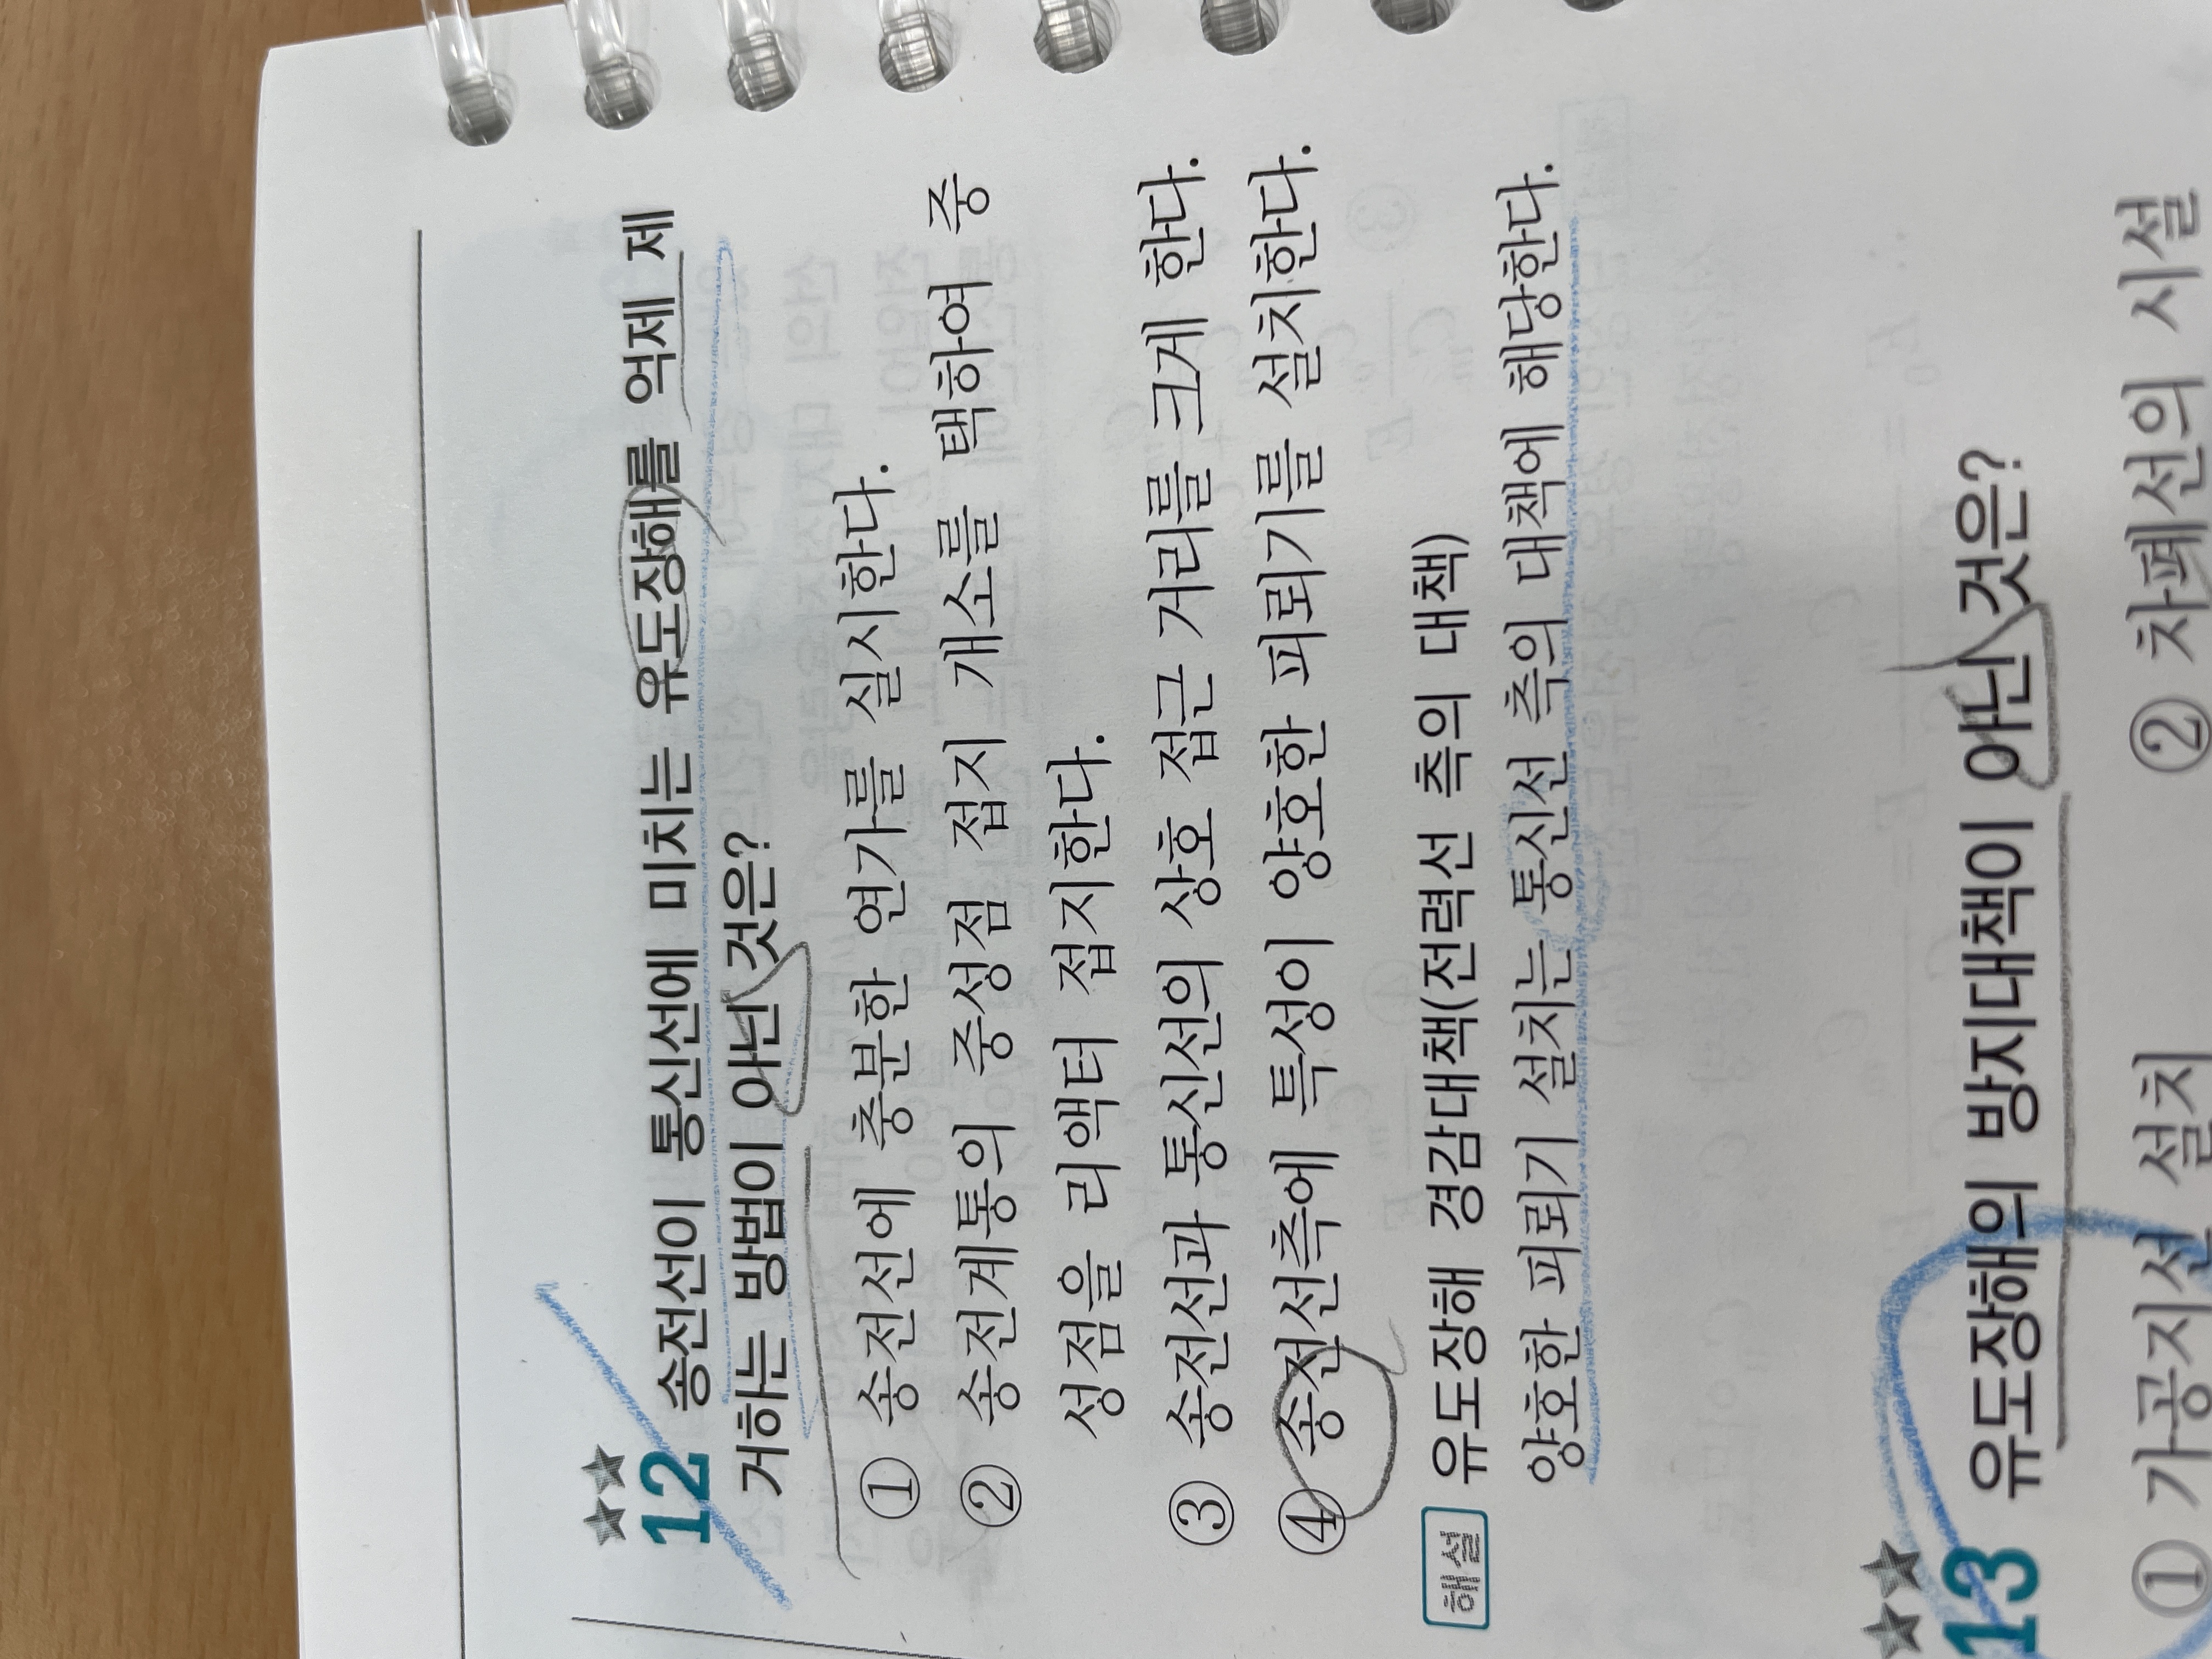 ★★
12 송전선이 통신선에 미치는 유도장해를 억제 제
거하는 방법이 아닌 것은?
① 송전선에 충분한 연가를 실시한다.
② 송전계통의 중성점 접지 개소를 택하여 중
성점을 리액터 접지한다.
③ 송전선과 통신선의 상호 접근 거리를 크게 한다.
④ 송전선측에 특성이 양호한 피뢰기를 설치한다.
해설 유도장해 경감대책(전력선 측의 대책)
양호한 피뢰기 설치는 통신선 측의 대책에 해당한다.
★★
13 유도장해의 방지대책이 아닌 것은?
① 가공지선 설치 ② 차폐선의 시설